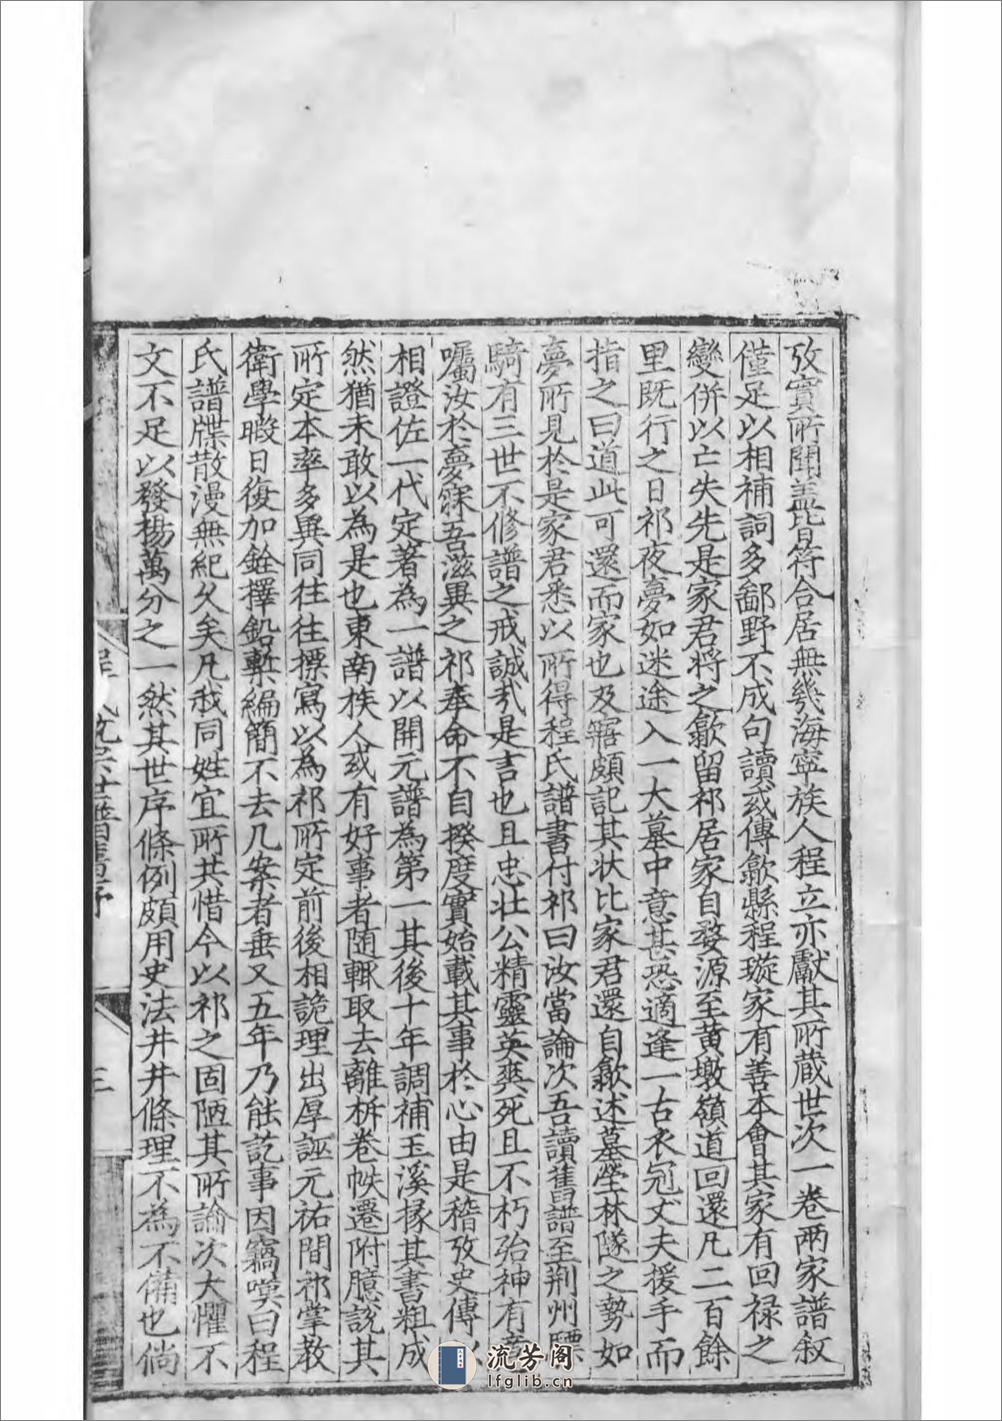 攷實所聞蓋皆符合居無幾海寧族人程立亦獻其所蔵世次一卷兩家譜叙
僅足以相補詞多鄙野不成句讀或傳歙縣程璇家有善本會其家有回禄之
變併以亡失先是家君將之歙留祁居家自婺源至黄墩嶺道回還凡二百餘
里既行之日祁夜夢如迷途入一大墓中意甚恐適逢一古衣冠丈夫援手而
指之曰道此可還而家也及寤頗記其状比家君還自歙述墓塋林隧之勢如
夢所見於是家君悉以所得程氏譜書付祁曰汝當論次吾讀舊譜至荆州驃
騎有三世不修譜之戒誠哉是言也且忠壮公精靈英爽死且不朽殆神有意
囑汝於夢寐吾滋異之祁奉命不自揆度實始載其事於心由是稽攷史傳以
相證佐一代定著為一譜以開元譜為第一其後十年調補玉溪掾其書粗成
然猶未敢以為是也東南族人或有好事者随輙取去離析卷帙遷附臆説其
所定本率多異同往往摽寫以為祁所定前後相詭理出厚誣元祐間祁掌教
衛學暇日復加銓擇鉛槧編簡不去几案者垂又五年乃能訖事因竊嘆曰程
氏譜牒散漫無紀久矣凡我同姓宜所共惜今以祁之固陋其所論次大懼不
文不足以發楊萬分之一然其世序條例頗用史法井井條理不為不備也倘
統宗世譜舊序
三
流芳阁
lfglib.cn